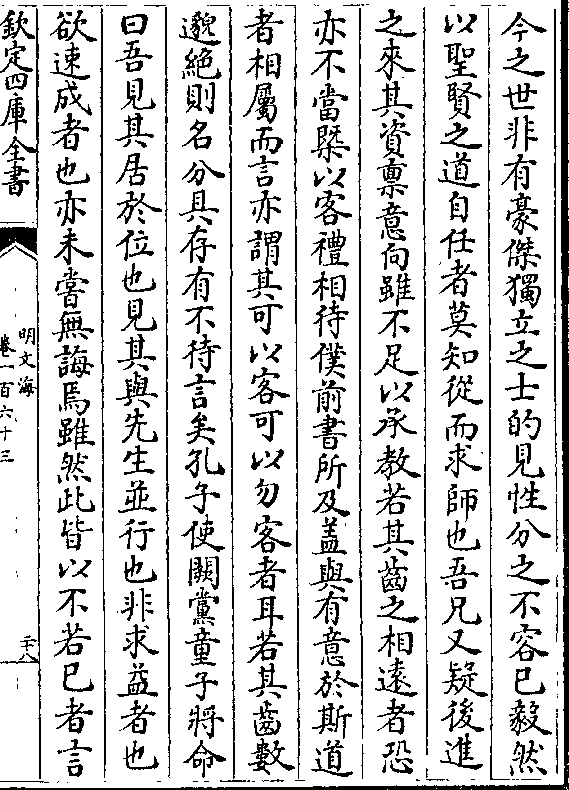 今之世非有豪傑獨立之士的見性分之不容已毅然
以聖賢之道自任者莫知從而求師也吾兄又疑後進
之來其資稟意向雖不足以承教若其齒之相遠者恐
亦不當槩以客禮相待僕前書所及蓋與有意於斯道
者相屬而言亦謂其可以客可以勿客者耳若其齒數
邈絶則名分具存有不待言矣孔子使闕黨童子將命
曰吾見其居於位也見其與先生並行也非求益者也
欲速成者也亦未嘗無誨焉雖然此皆以不若已者言
欽定四庫全書
明文海
卷一百六十三
二十八